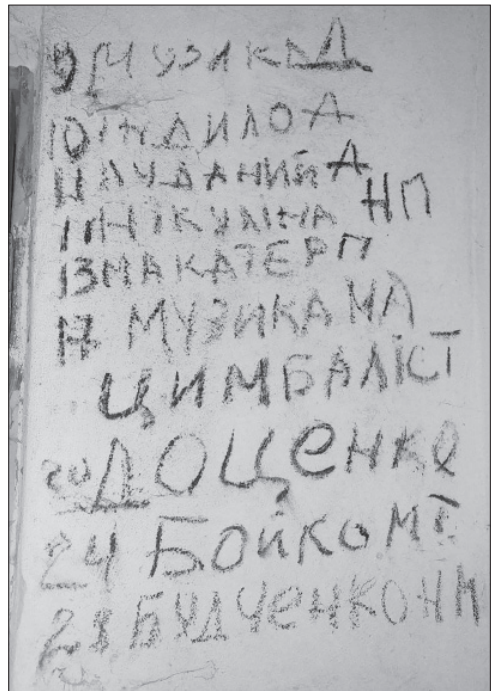 9 МУЗИКА Д
10 ІНДИЛО А
11 ЛУДАНИЙ А
11 НІКУЛІНА НП
13 МАКАТЕР П
17 МУЗИКА МА
ЦИМБАЛІСТ
20 ДОЦЕНКО
24 БОЙКО МТ
28 БУДЧЕНКО НМ